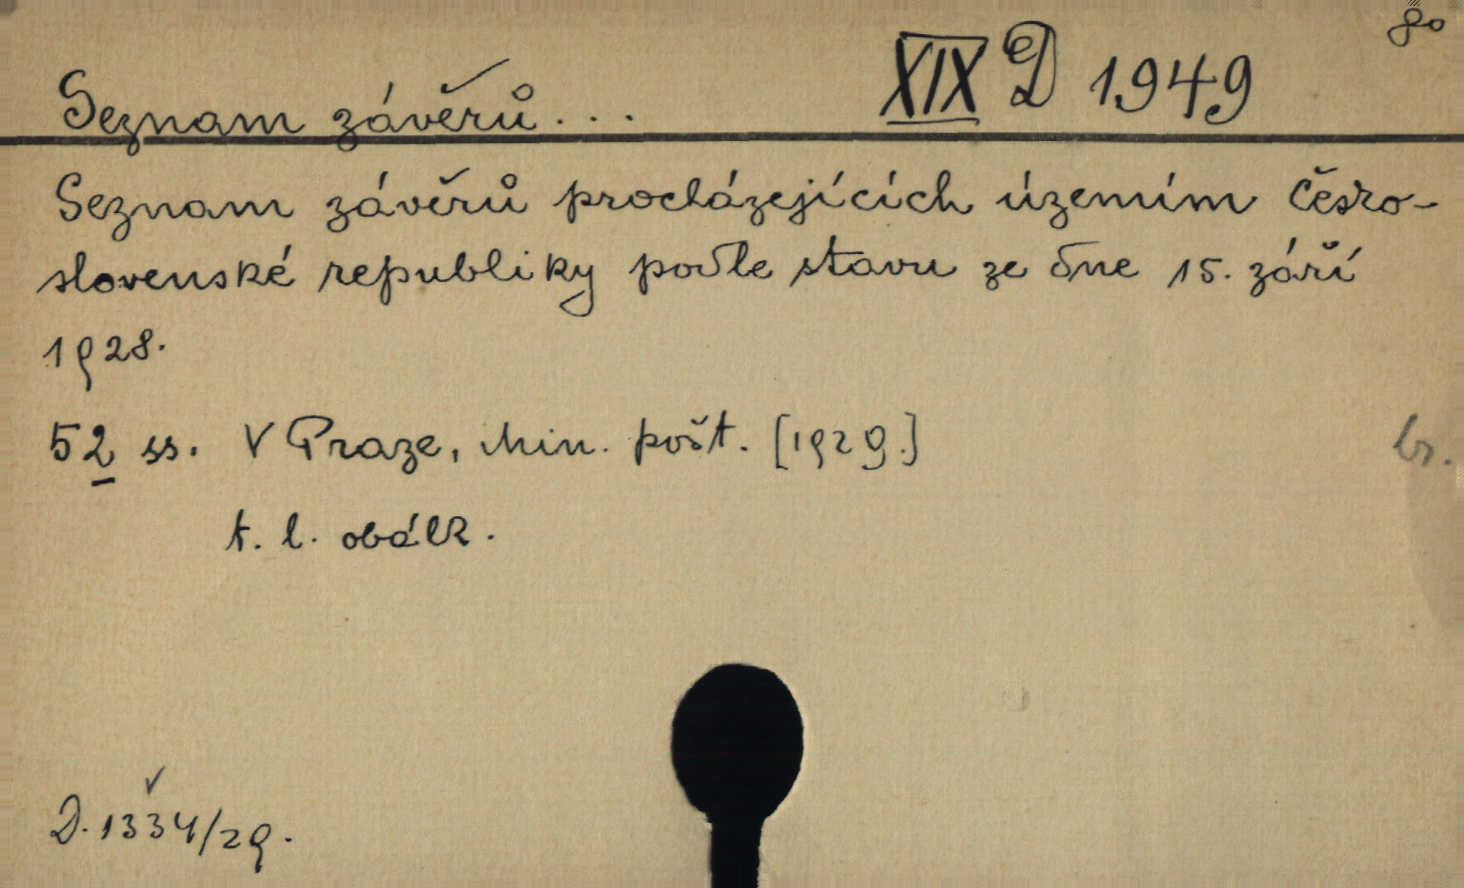 8°
Seznam závěrů... XIX D 1949
Seznam závěrů procházejících územím Česko-
slovenské republiky podle stavu ze dne 15. září
1928.
52 ss. V Praze, Min. pošt. [1929.]
br.
t. l. obálk.
D. 1334/29.